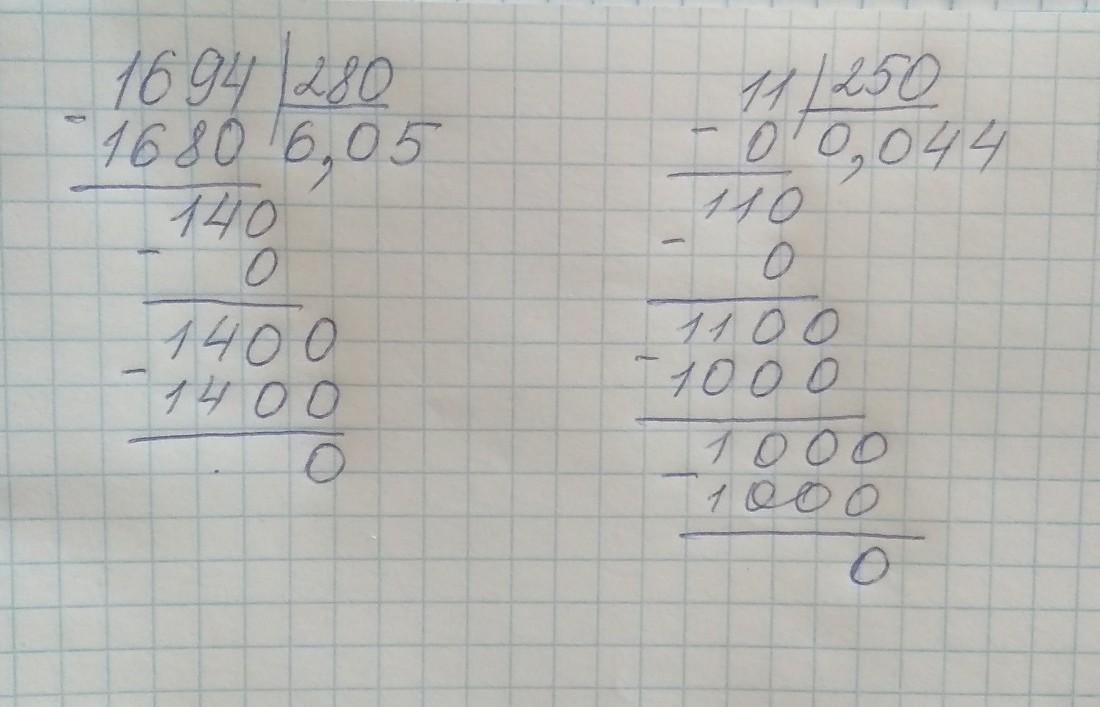 1694 280
- 1680 6,05
140
- 0
1400
- 1400
0
11 250
- 0 0,044
110
- 0
1100
- 1000
1000
- 1000
0